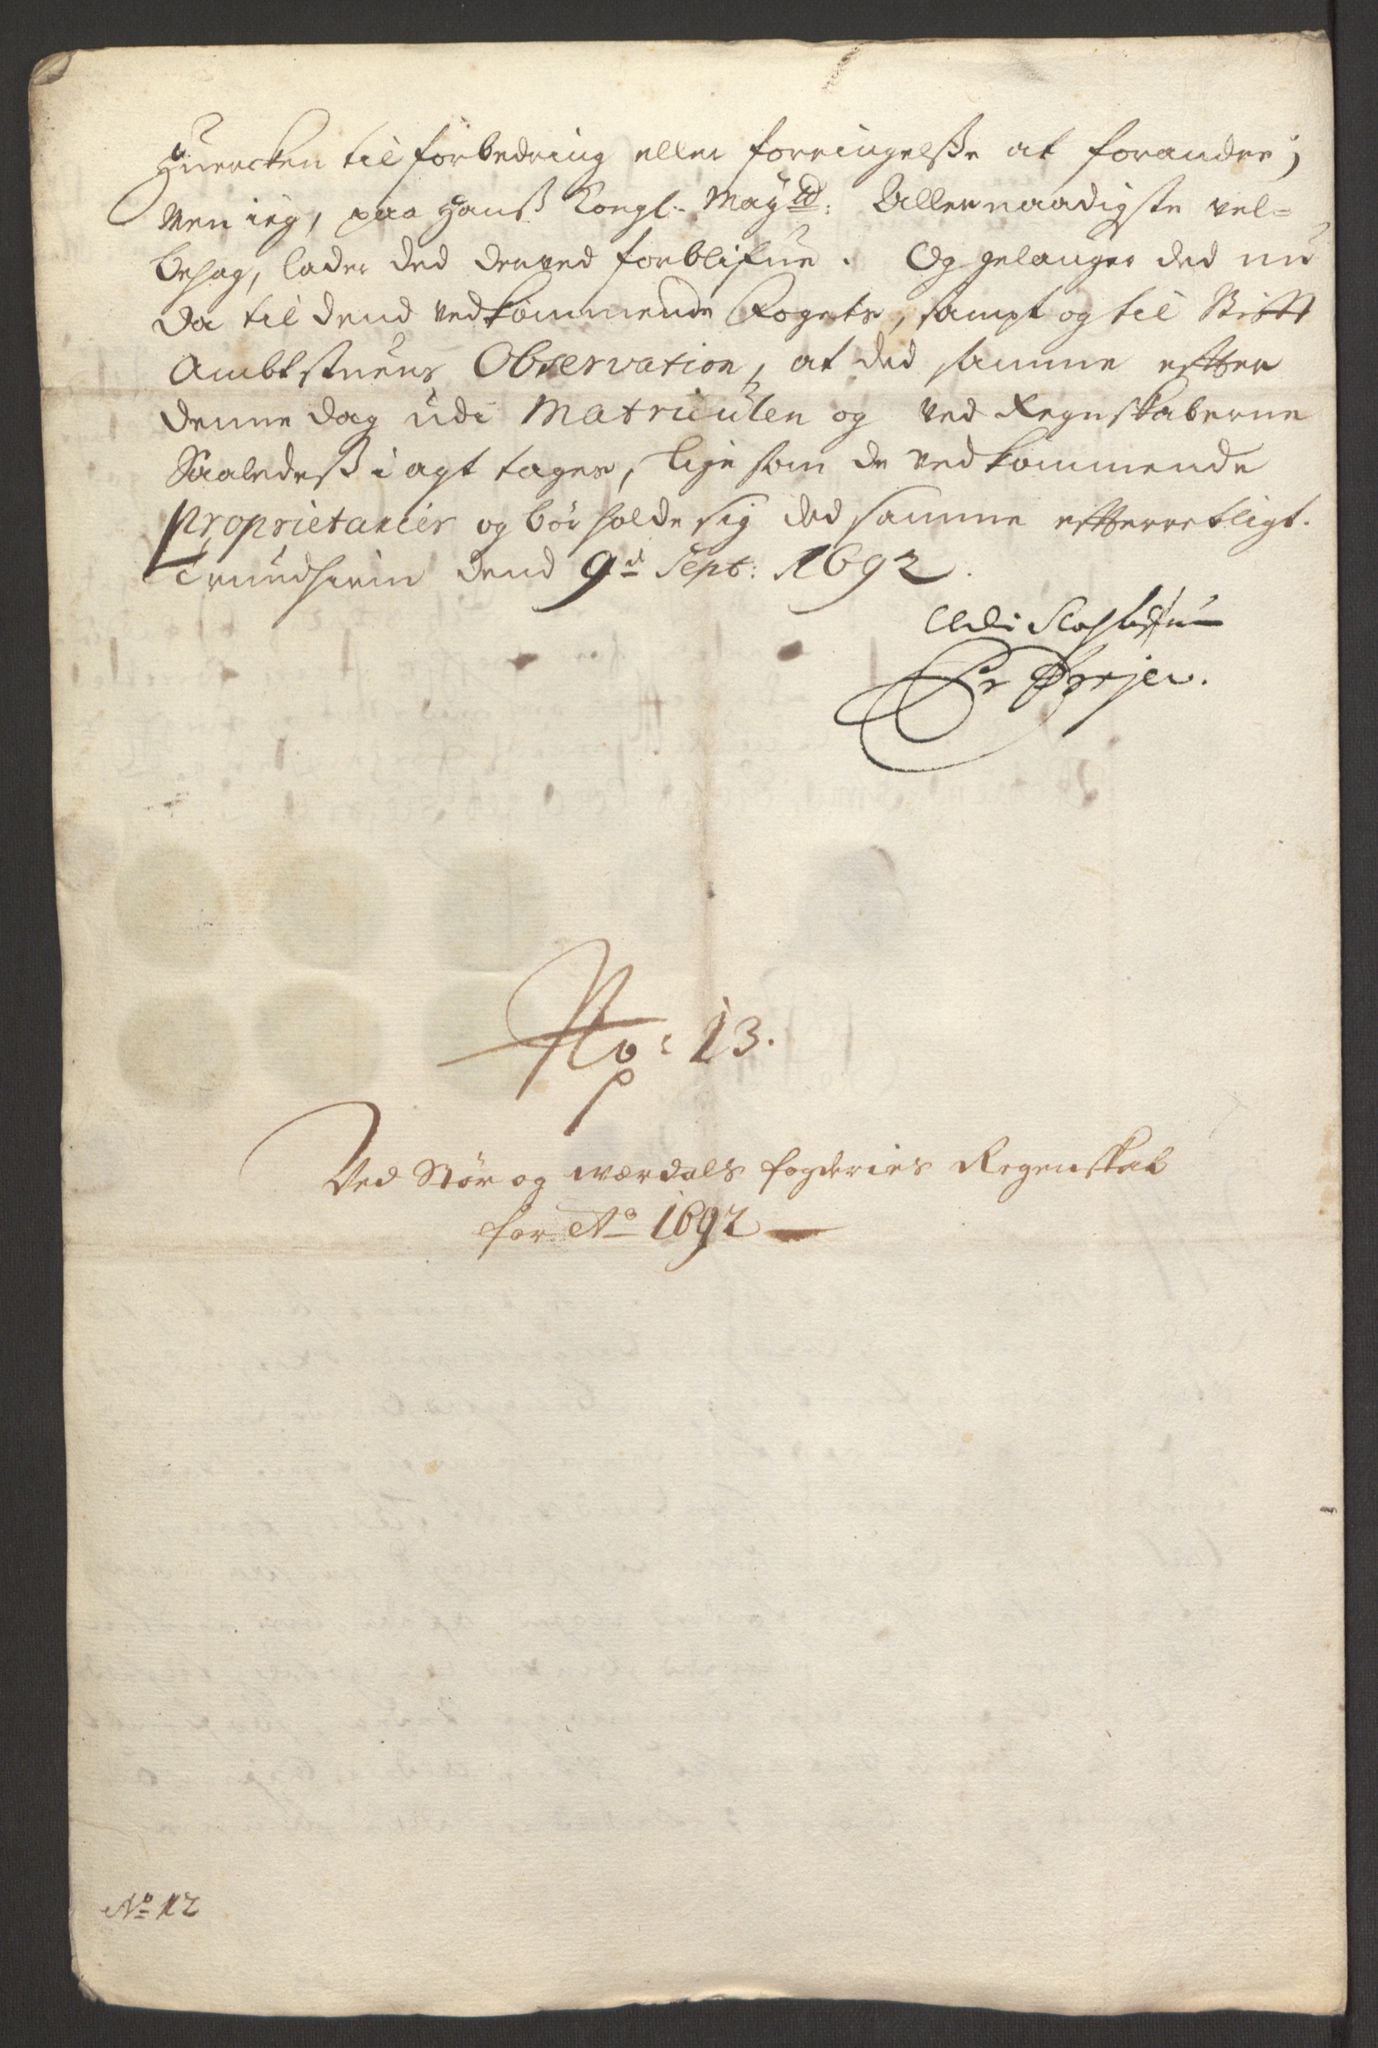 Huercken til forbedring eller forringelsse at forandre;
Men ieg, paa Hanß Kongl. Mayts: Allernaadigste vel-
behag, lader ded derved forblifue. Og gelanger ded nu
da til dend vedkommende Fogets, sampt og til Stifft
Ambtstuens Observation, at ded samme effter
denne dag udi Matriculen og ved Regnskaberne
Saaledeß i agt tages, lige som de vedkommende
Proprietarier og bør holde sig ded samme effterretligt.
Trundhiem dend 9d Sept: 1692.
No: 13.
Ved Stør og Værdals fogderies Regenskab
for Ao 1692
No 12